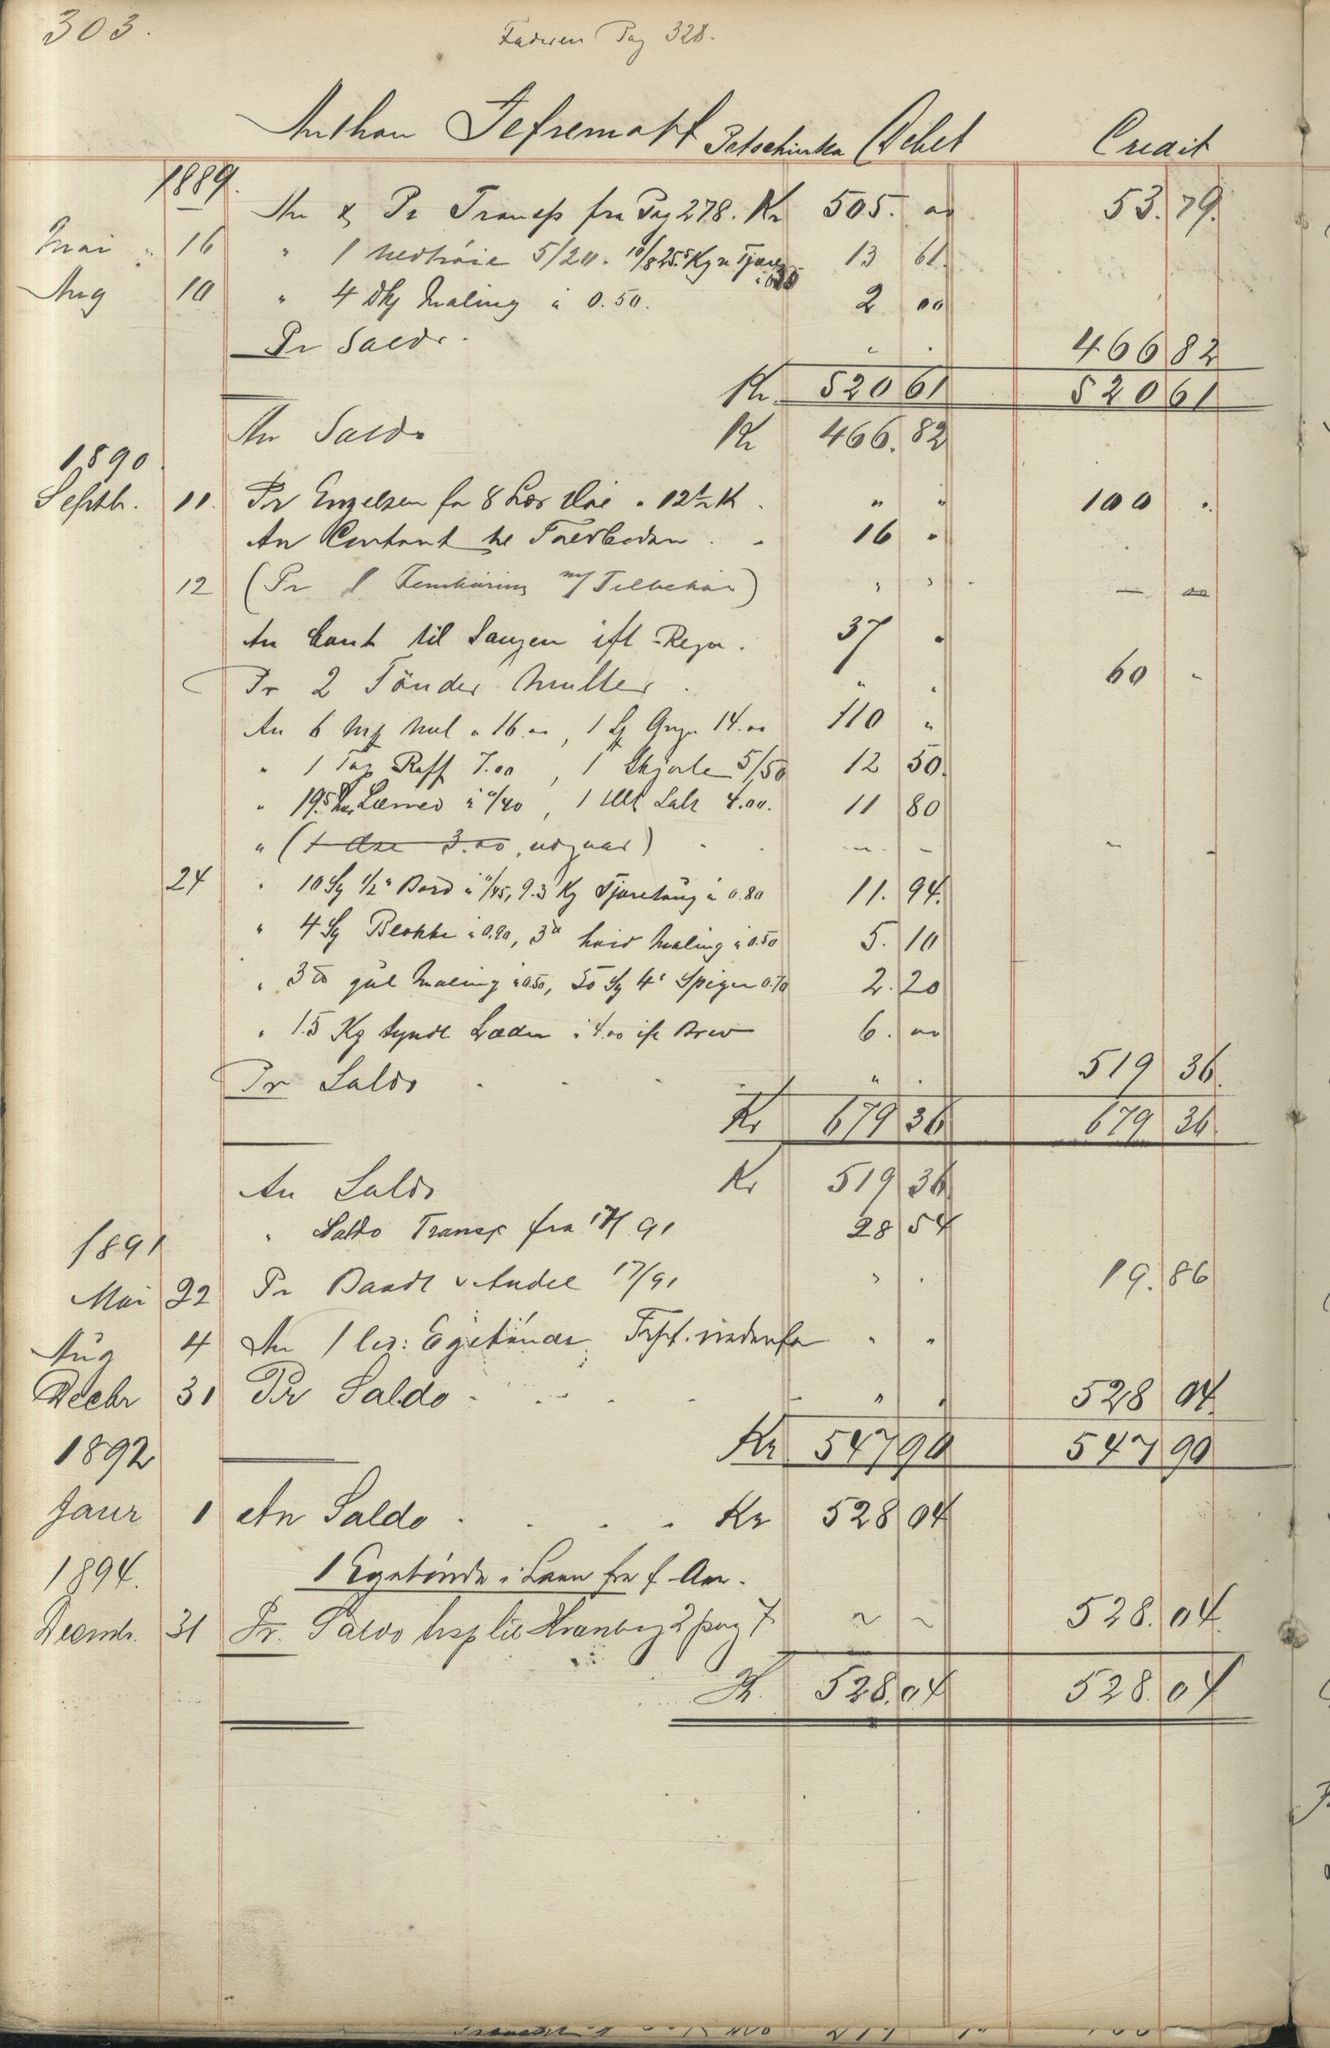 303.
Faderen Pag 328.
Anthon Jefremoff Petschinka Debet Credit
1889.
An & Pr Transp fra Pag 278. Kr 505. 00 53. 79.
Mai 16 " 1 5/20. Kg 13 61.
Aug 10 " 4 Maling a 0.50. 2 00
Pr Saldo. " . 466 82
Kr. 520 61 520 61
An Saldo Kr 466. 82
1890.
Septbr. 11. Pr Engelsen for 8 12½ K. " " 100 ".
An Contant 16 "
12 (Pr 1 Femkøring m/ Tilbehør) " " — 00
An Cont til Saugen ift Regn. 37 "
Pr 2 Tönder Multer. " " 60 "
An 6 Mel a 16.00, 1 Gryn 14.00 110 "
" 1 Raff 7.00, 1 Skjorte 5/50 12 50.
" 19.5 Lærred a /40, 1 Salt 4.00. 11 80
" (1 3.00, udgaar) - - - -
24 " 10 1/2" Bord a /45, 9.3 Kg Tjæretoug a 0.80 11. 94.
" 4 Blokke a 0.90, 3 hvid Maling a 0.50 5. 10
" 3 gul Maling a 0.50, 50 4" Spiger 0.70 2. 20
" 1.5 Kg tyndt Læder a 4.00 ift Brev 6. 00
Pr Saldo " . 519 36.
Kr 679 36 679 36.
An Saldo Kr 519 36.
" Saldo Transp fra 17/91 28 54
1891
Mai 22 Pr Baadt v Andel 17/91 " . 19. 86
Aug 4 An 1 Egetönde " "
Decbr 31 Pr Saldo " . 528 04.
1892
Kr 547 90 547 90
Janr 1 An Saldo Kr 528 04
1894.
1 Egetönde i Laan fra f. Aar.
Decmbr. 31 Pr. Saldo trsp til 2 pag 7 ~ ~ 528. 04.
Kr. 528. 04 528. 04